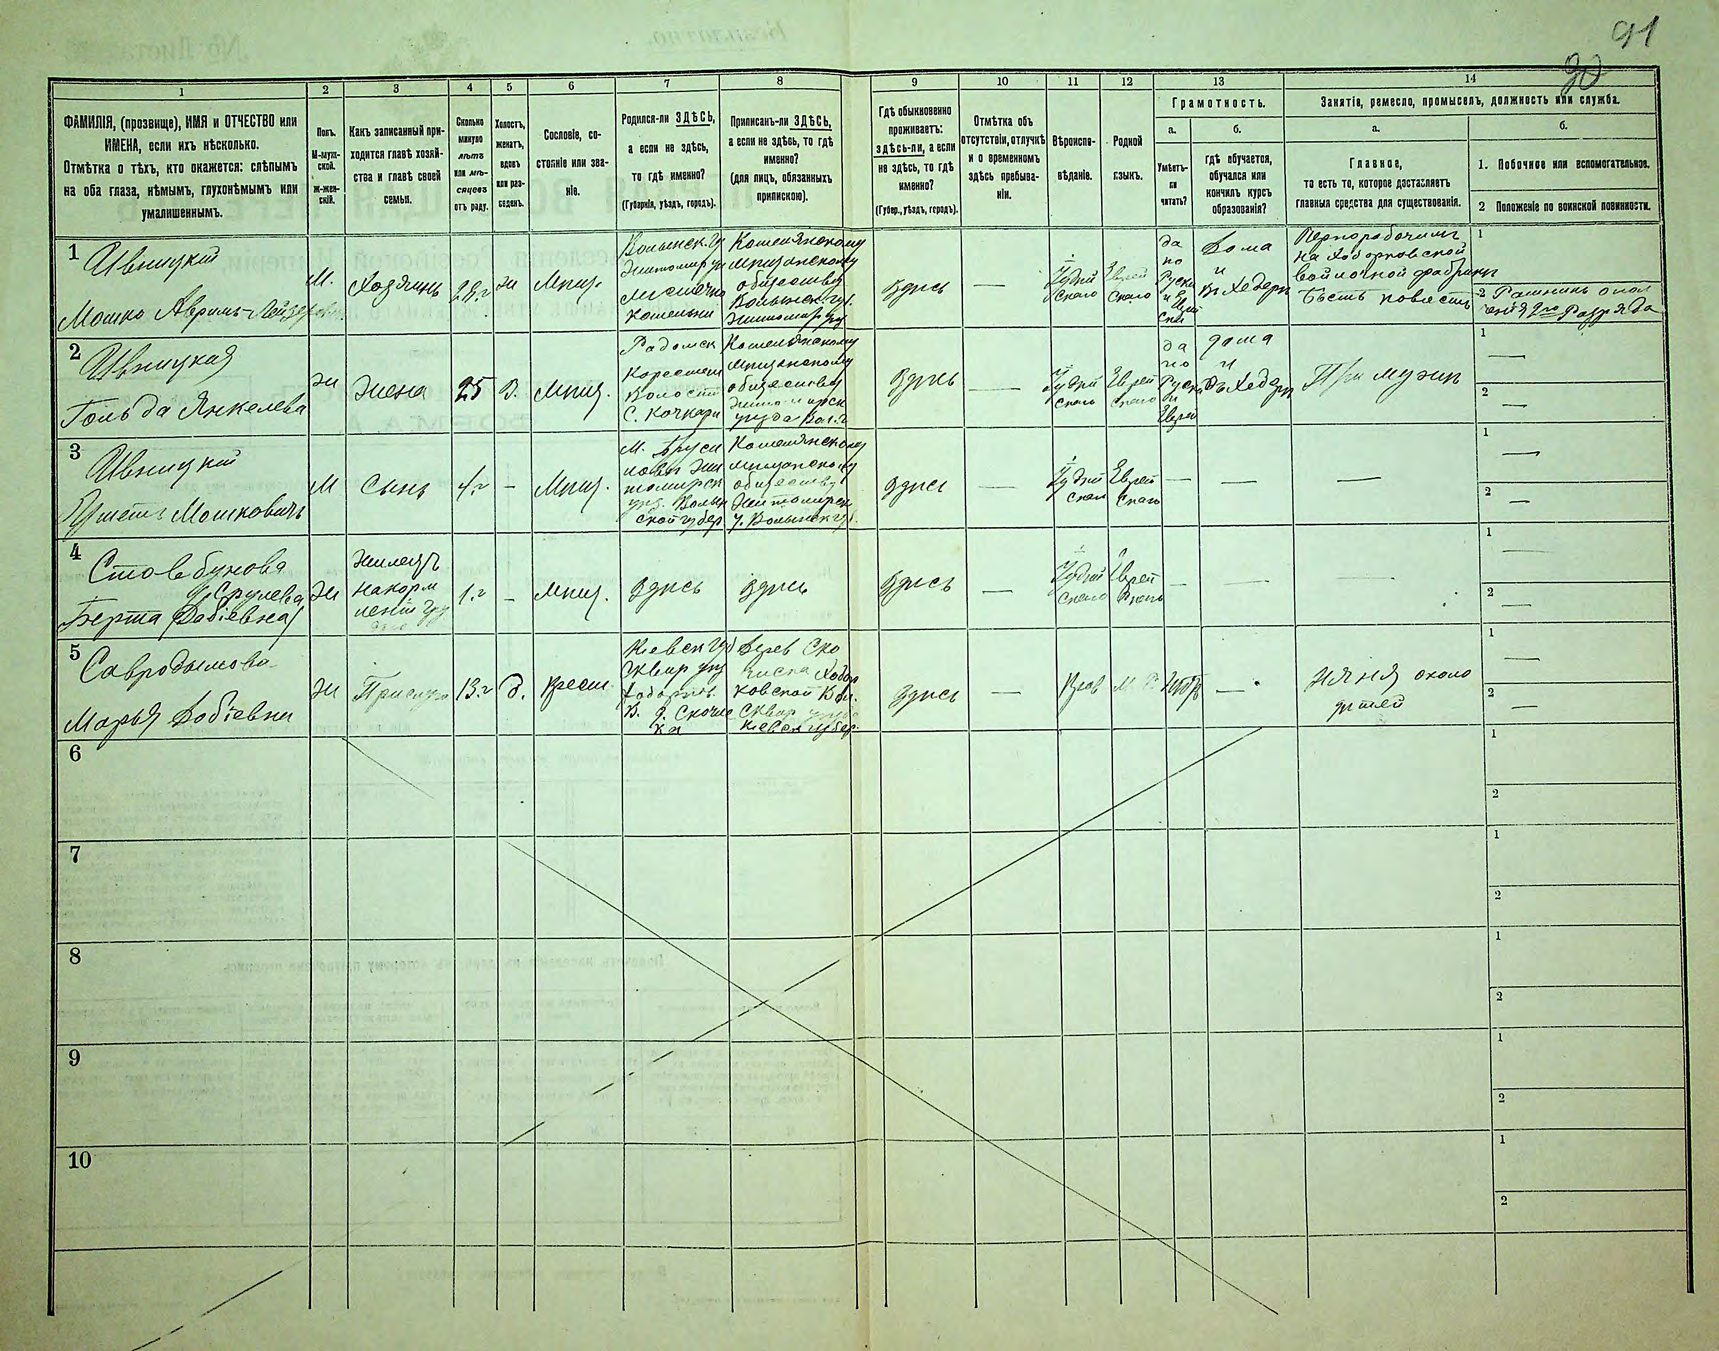 91
90
1
2
3
4
5
6
7
8
9
10
11
12
13
14
ФАМИЛІЯ, (прозвище), ИМЯ и ОТЧЕСТВО или
ИМЕНА, если ихъ нѣсколько.
Отмѣтка о тѣхъ, кто окажется: слѣпымъ
на оба глаза, нѣмымъ, глухонѣмымъ или
умалишеннымъ.
Полъ.
М-муж-
ской.
ж-жен-
скій.
Какъ записанный при-
ходится главѣ хозяй-
ства и главѣ своей
семьи.
Сколько
минуло
лѣтъ
или мѣ-
сяцевъ
отъ роду.
Холостъ,
женатъ,
вдовъ
или раз-
веденъ.
Сословіе, со-
стояніе или зва-
ніе.
Родился-ли ЗДѢСЬ,
а если не здѣсь,
то гдѣ именно?
(Губернія, уѣздъ, городъ).
Приписанъ-ли ЗДѢСЬ,
а если не здѣсь, то гдѣ
именно?
(для лицъ, обязанныхъ
припискою).
Гдѣ обыкновенно
проживаетъ:
здѣсь-ли, а если
не здѣсь, то гдѣ
именно?
(Губер., уѣздъ, городъ).
Отмѣтка объ
отсутствіи, отлучкѣ
и о временномъ
здѣсь пребыва-
ніи.
Вѣроиспо-
вѣданіе.
Родной
языкъ.
Грамотность.
а.
Умѣетъ-
ли
читать?
б.
гдѣ обучается,
обучался или
кончилъ курсъ
образованія?
Занятіе, ремесло, промыселъ, должность или служба.
а.
Главное,
то есть то, которое доставляетъ
главныя средства для существованія.
б.
1. Побочное или вспомогательное.
2 Положеніе по воинской повинности.
1
Ивницкій
Мошко Аврумъ-Лейзеровъ
М.
Хозяинъ
ж
Мѣщ.
Волынск. гу
Житомир у
мѣстечко
Кошельни
Кошелянскому
мѣщанскому
обществу
Волынск гу.
Житомир у
здѣсь
—
Іудей
скаго
Еврей
скаго
да
по
Руски
и Еврей
ски
Дома
и
въ Хедерѣ
Чернорабочимъ
на Ходорковской
войлочной фабрики
1
2 Ратникъ опол
ченія 2го Разряда
2
Ивницкая
Гольда Янкелева
Ж
Жена
25
З.
Мѣщ.
Радомск
Волости
с. Кочкари
Кошелянскому
мѣщанскому
обществу
Житомирск
уѣзда Вол. г
здѣсь
—
Іудей
скаго
Еврей
скаго
да
по
Руски
и
Еврей
дома
и
въ Хедерѣ
При мужѣ
1
—
2
—
3
Ивницкій
Мошковичъ
М
Сынъ
4. г
-
Мѣщ.
М. Бруси
ловъ Жи
томирск
уѣз. Волын
ской губер
Кошелянскому
мѣщанскому
обществу
Житомирск
у. Волынск гу.
здѣсь
—
Іудей
скаго
Еврей
скаго
—
—
—
1
—
2
—
4
Столебунова
Срулева
Берта (Довіевна)
Ж
Жилецъ
на корм
леніи
1. г
-
Мѣщ.
здѣсь
здѣсь
здѣсь
—
Іудей
скаго
Еврей
скаго
—
—
—
1
—
2
—
5
Савродымова
Марья Довіевна
Ж
Прислуга
13. г
д.
Крест.
Кіевск губ
Сквир уѣз
Ходорков.
В. д. Скочис
ка
Дерев Ско
чиска Ходор
ковской Вол.
Сквир уѣзд
Кіевск губер.
здѣсь
—
Прав
М. Р.
нѣтъ
—
няня около
дѣтей
1
—
2
—
6
1
2
7
1
2
8
1
2
9
1
2
10
1
2